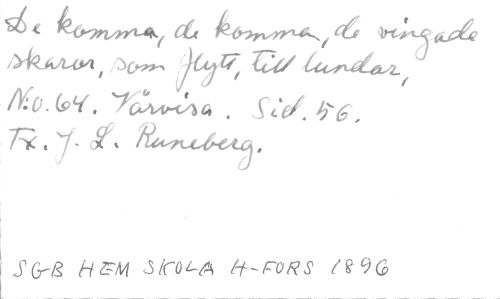 De komma, de komma, de vingade
skaror, som flytt, till lundar,
N:o. 64. Vårvisa. Sid. 56.
Tx. J. L. Runeberg.
SGB HEM SKOLA H-FORS 1896